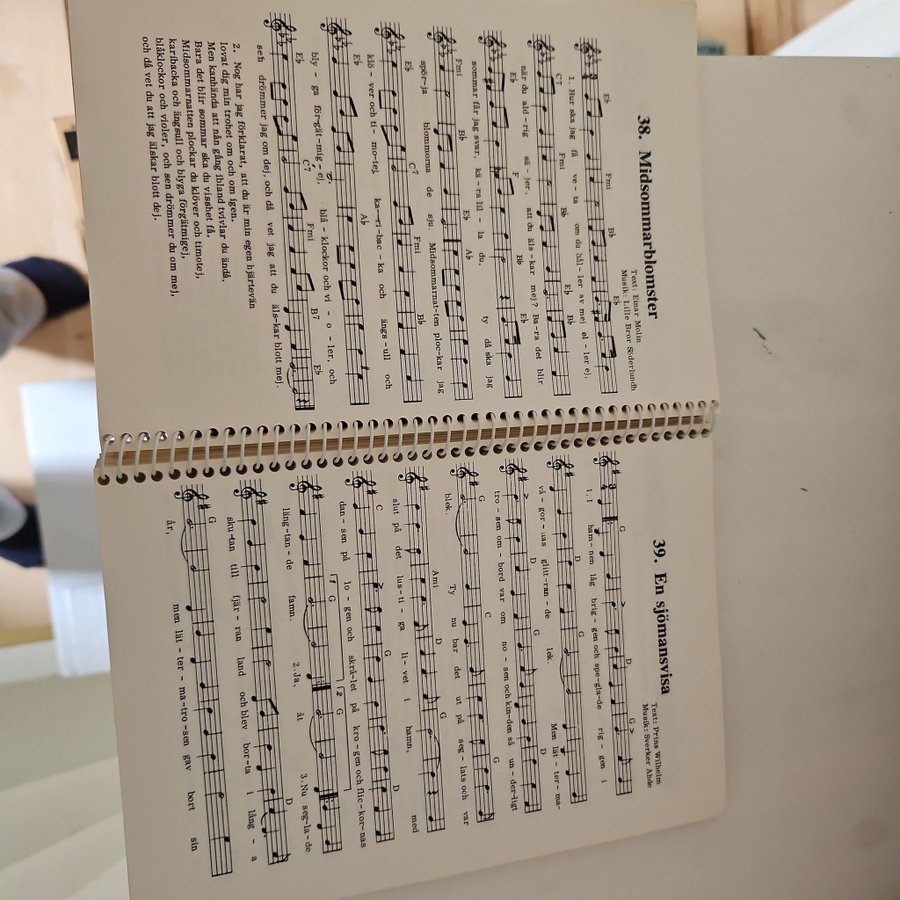 38. Midsommarblomster
Text: Einar Molin
Musik: Lille Bror Söderlundh
Eb Fmi Bb Eb
1. Hur ska jag få ve - ta om du hål - ler av mej el - ler ej,
C7 Fmi Bb Eb Bb
när du ald - rig sä - jer, att du äls - kar mej? Ba - ra det blir
Eb F Bb Eb
sommar får jag svar, kä - ra lil - la du, ty då ska jag
Fmi Bb Eb Ab
spör - ja blommorna de sju. Midsommarnat - ten ploc - kar jag
Eb C7 Fmi Bb
klö - ver och ti - motej, ka - ri - bac - ka och ängs - ull och
Eb Ab
bly - ga för - gät - mig - ej, blå - klockor och vi - o - ler, och
Eb C7 Fmi B7 Eb
sen drömmer jag om dej, och då vet jag att du äls - kar blott mej.
2. Nog har jag förklarat, att du är min egen hjärtevän
lovat dig min trohet om och om igen.
Men kanhända att nån gång ibland tvivlar du ändå.
Bara det blir sommar ska du visshet få.
Midsommarnatten plockar du klöver och timotej,
karibacka och ängsull och blyga förgätmigej,
blåklockor och violer, och sen drömmer du om mej,
och då vet du att jag älskar blott dej.
39. En sjömansvisa
Text: Prins Wilhelm
Musik: Sverker Ahde
G D G
1. I ham - nen låg brig - gen och spe - gla - de rig - gen i
D G
vå - gor - nas glitt - ran - de lek. Men lät - ter - ma -
D G D
tro - sen om - bord var om no - sen och kin - den så un - der - ligt
G C G
blek. Ty nu bar det ut på seg - lats och var
Ami D G
slut på det lus - ti - ga li - vet i hamn, med
C G D
dan - sen på lo - gen och skrå - let på kro - gen och flic - kor - nas
1 G 2 G
läng - tan - de famn. 2. Ja, åt 3. Nu seg - la - de
D
sku - tan till fjär - ran land och blev bor - ta i lång - a
G
år, men lät - ter - ma - tro - sen gav bort sin